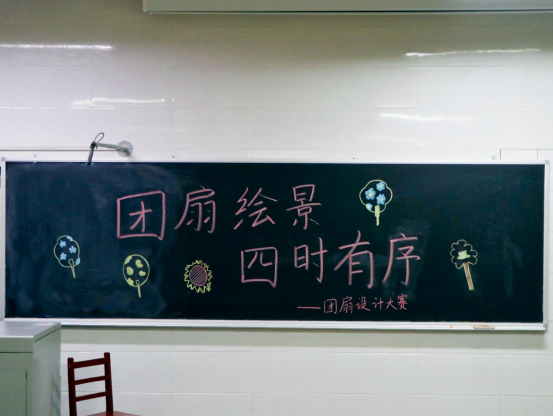 团扇绘景
四时有序
——团扇设计大赛